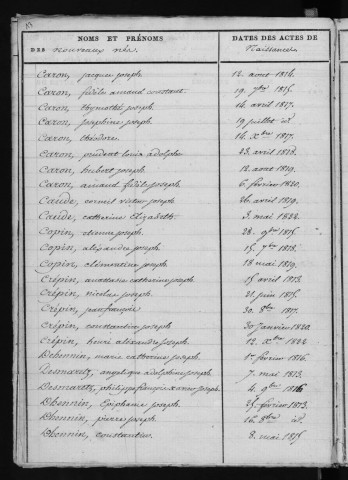 NOMS ET PRÉNOMS
DES Nouveaux nés.
DATES DES ACTES DE
Naissances
Caron, jacques joseph. 12. aout 1814.
Caron, fidele amand constant. 19. 7bre 1815.
Caron, thymothé joseph. 14. avril 1817.
Caron, josephine joseph. 19. juillet id.
Caron, théodore. 14. Xbre 1817.
Caron, prudent louis adolphe. 23. avril 1818.
Caron, hubert joseph. 12. aout 1819.
Caron, amand fidele joseph. 6. fevrier 1820.
Caude, corneil victor joseph. 26. avril 1819.
Caude, catherine Elizabeth. 3. mai 1822.
Copin, etienne joseph. 28. 9bre 1815.
Copin, aléxandre joseph. 15. 7bre 1818.
Copin, clémentine joseph. 18. mai 1819.
Crépin, anastasie catherine joseph. 15. avril 1813.
Crépin, nicolas joseph. 21. juin 1815.
Crépin, jean françois. 30. 8bre 1817.
Crépin, constantin joseph. 30. janvier 1820.
Crépin, henri alexandre joseph. 12. Xbre 1822
Dehennin, marie catherine joseph. 1er fevrier 1816.
Desmaretz, angelique adolphine joseph. 7. mai 1813.
Desmaretz, philippe françois xavier joseph. 4. 9bre 1816
Dhennin, Epiphanie joseph. 25. fevrier 1813.
Dhennin, pierre joseph. 16. 8bre id.
Dhennin, constantin. 8. mai 1815